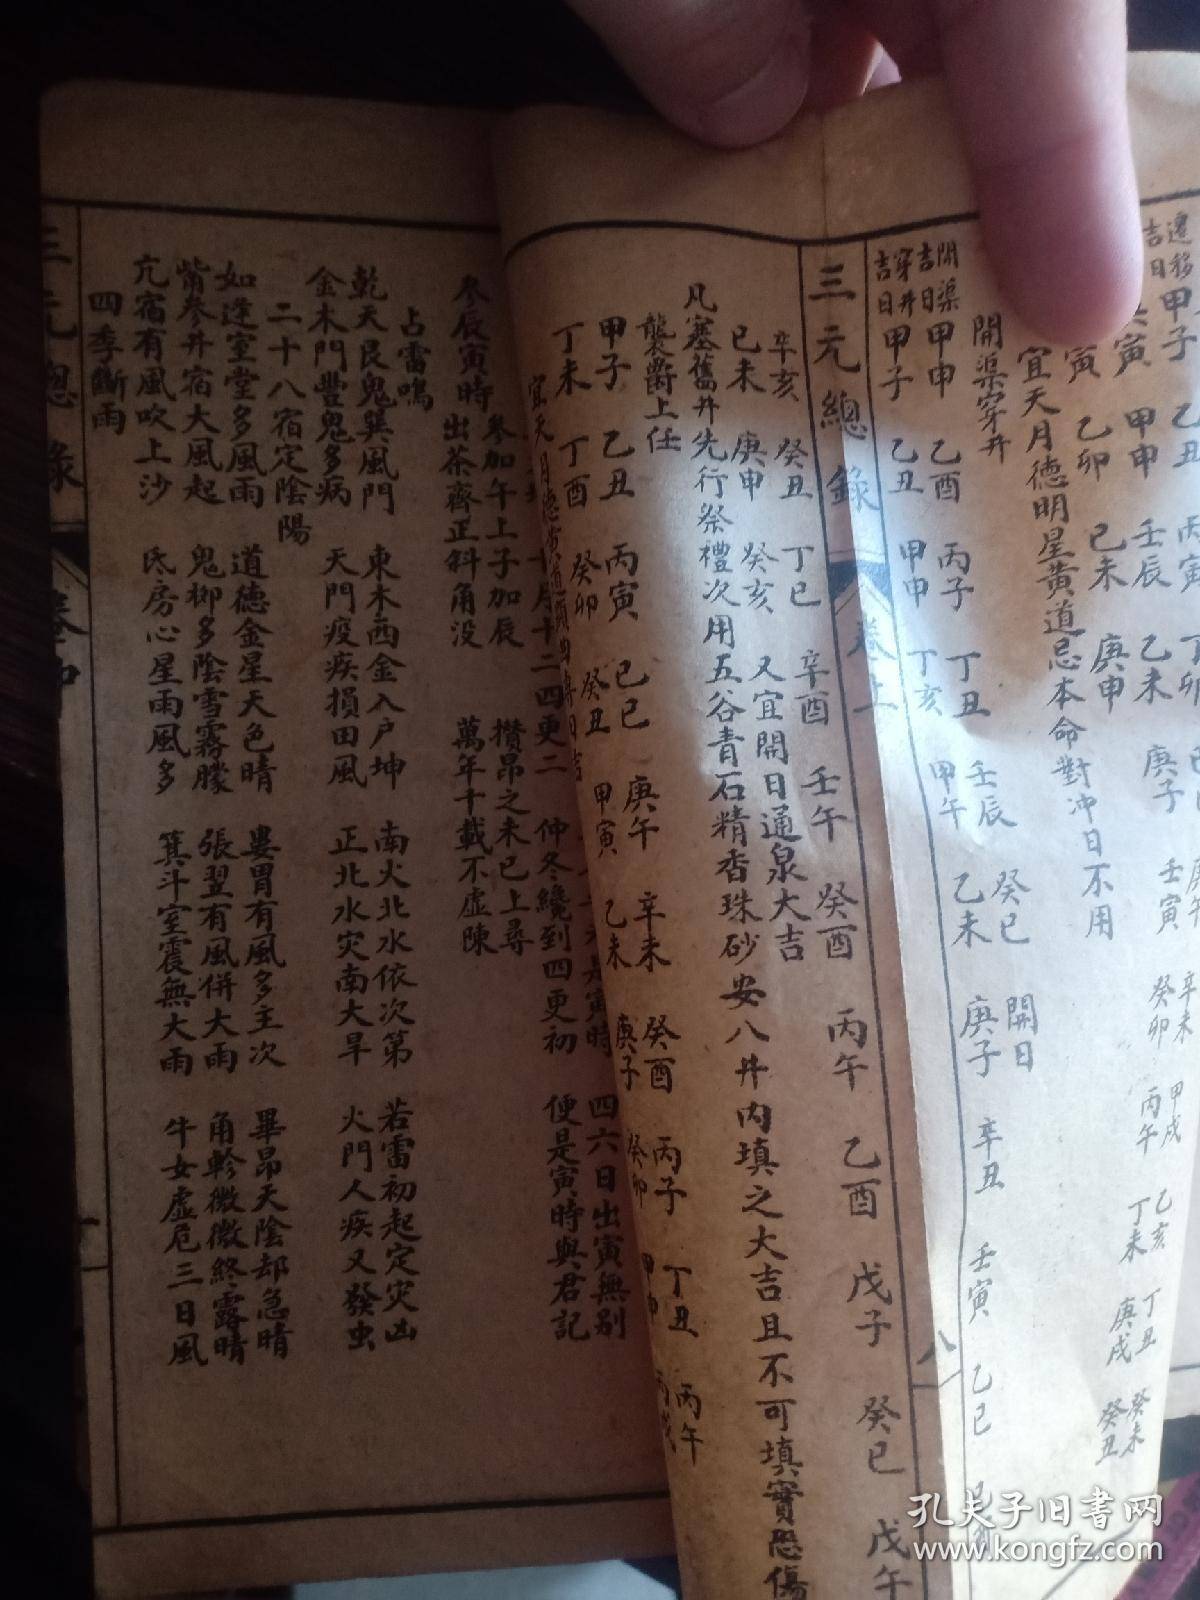 遷移
吉日
甲子 乙丑 丙寅 丁卯
辛未 甲戌 乙亥 丁丑 癸未
甲申 壬辰 乙未 庚子 壬寅 癸卯 丙午 丁未 庚戌 癸丑
乙卯 己未 庚申
宜天月德明星黃道忌本命對冲日不用
開渠穿井
開渠
吉日
甲申 乙酉 丙子 丁丑 壬辰 癸巳 開日
穿井
吉日
甲子 乙丑 甲申 丁亥 甲午 乙未 庚子 辛丑 壬寅 乙巳
三元總錄 卷上 八
辛亥 癸丑 丁巳 辛酉 壬午 癸酉 丙午 乙酉 戊子 癸巳 戊午
己未 庚申 癸亥 又宜開日通泉大吉
凡塞舊井先行祭禮次用五谷青石精香珠砂安八井內填之大吉且不可填實恐傷
襲爵上任
甲子 乙丑 丙寅 己巳 庚午 辛未 癸酉 丙子 丁丑 丙午
丁未 丁酉 癸卯 癸丑 甲寅 乙未 庚子 癸卯 甲申
四六日出寅無別
十月十二四更二 仲冬纔到四更初 便是寅時與君記
參辰寅時
參加午上子加辰 攢昂之未巳上尋
出茶齊正斜角沒 萬年千載不虛陳
占雷鳴
乾天艮鬼巽風門 東木西金入戶坤 南火北水依次第 若雷初起定灾凶
金木門豐鬼多病 天門疫疾損田風 正北水灾南大旱 火門人疾又發虫
二十八宿定陰陽
如逢室堂多風雨 道德金星天色晴 婁胃有風多主次 畢昂天陰却急晴
觜參井宿大風起 鬼柳多陰雪霧朦 張翌有風併大雨 角軫微微終露晴
亢宿有風吹上沙 氐房心星雨風多 箕斗室震無大雨 牛女虛危三日風
四季斷雨
三元總錄
孔夫子旧书网
www.kongfz.com